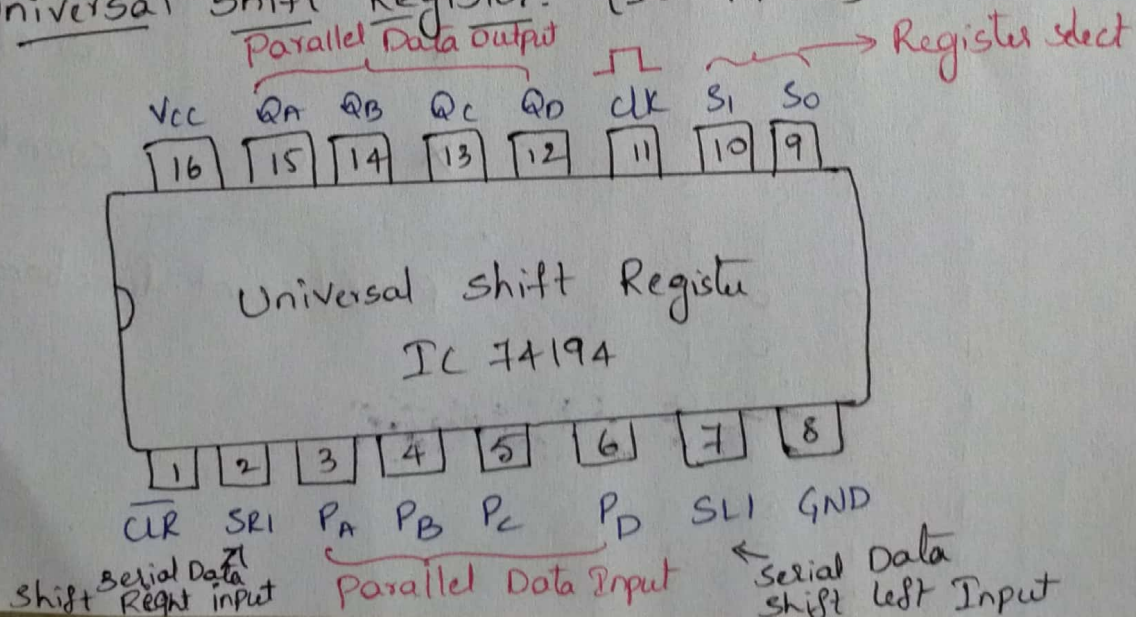 niversal Shift Register.
Parallel Data output
Register select
Vcc QA QB Qc QD clk S1 S0
16 15 14 13 12 11 10 9
Universal shift Register
IC 74194
1 2 3 4 5 6 7 8
C̅L̅R̅ SRI PA PB PC PD SLI GND
Serial Data
Shift Reght input
Parallel Data Input
Serial Data
Shift left Input